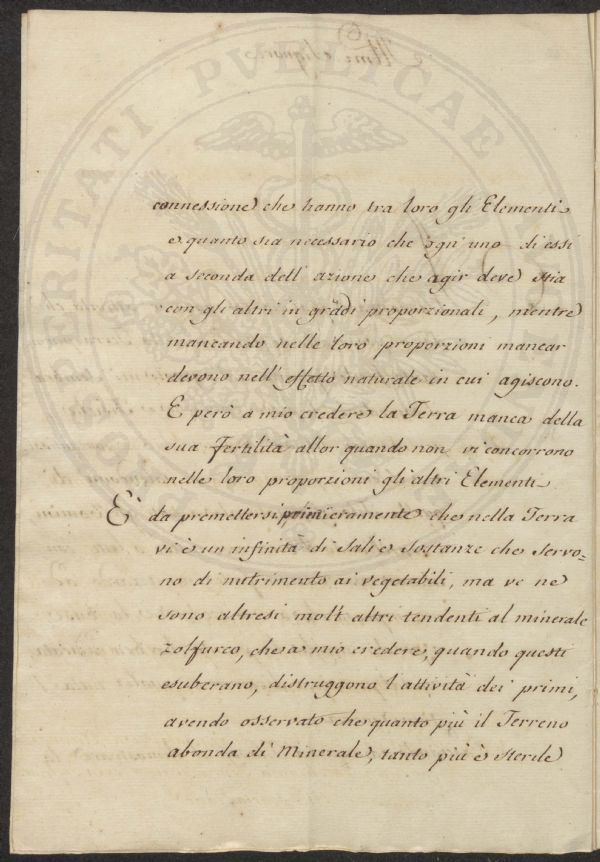 connessione che hanno tra loro gli Elementi
e quanto sia necessario che ogn' uno di essi
a seconda dell' azione che agir deve stia
con gli altri in gradi proporzionali, mentre
mancando nelle loro proporzioni mancar
devono nell' effetto naturale in cui agiscono.
E però a mio credere la Terra manca della
sua Fertilità allor quando non vi concorrono
nelle loro proporzioni gli altri Elementi
E' da premettersi primieramente che nella Terra
vi è un infinità di sali e sostanze che servo=
no di nutrimento ai vegetabili, ma ve ne
sono altresi molt' altri tendenti al minerale
zolfureo, che a mio credere, quando questi
esuberano, distruggono l' attività dei primi,
avendo osservato che quanto più il Terreno
abonda di Minerale, tanto più è sterile